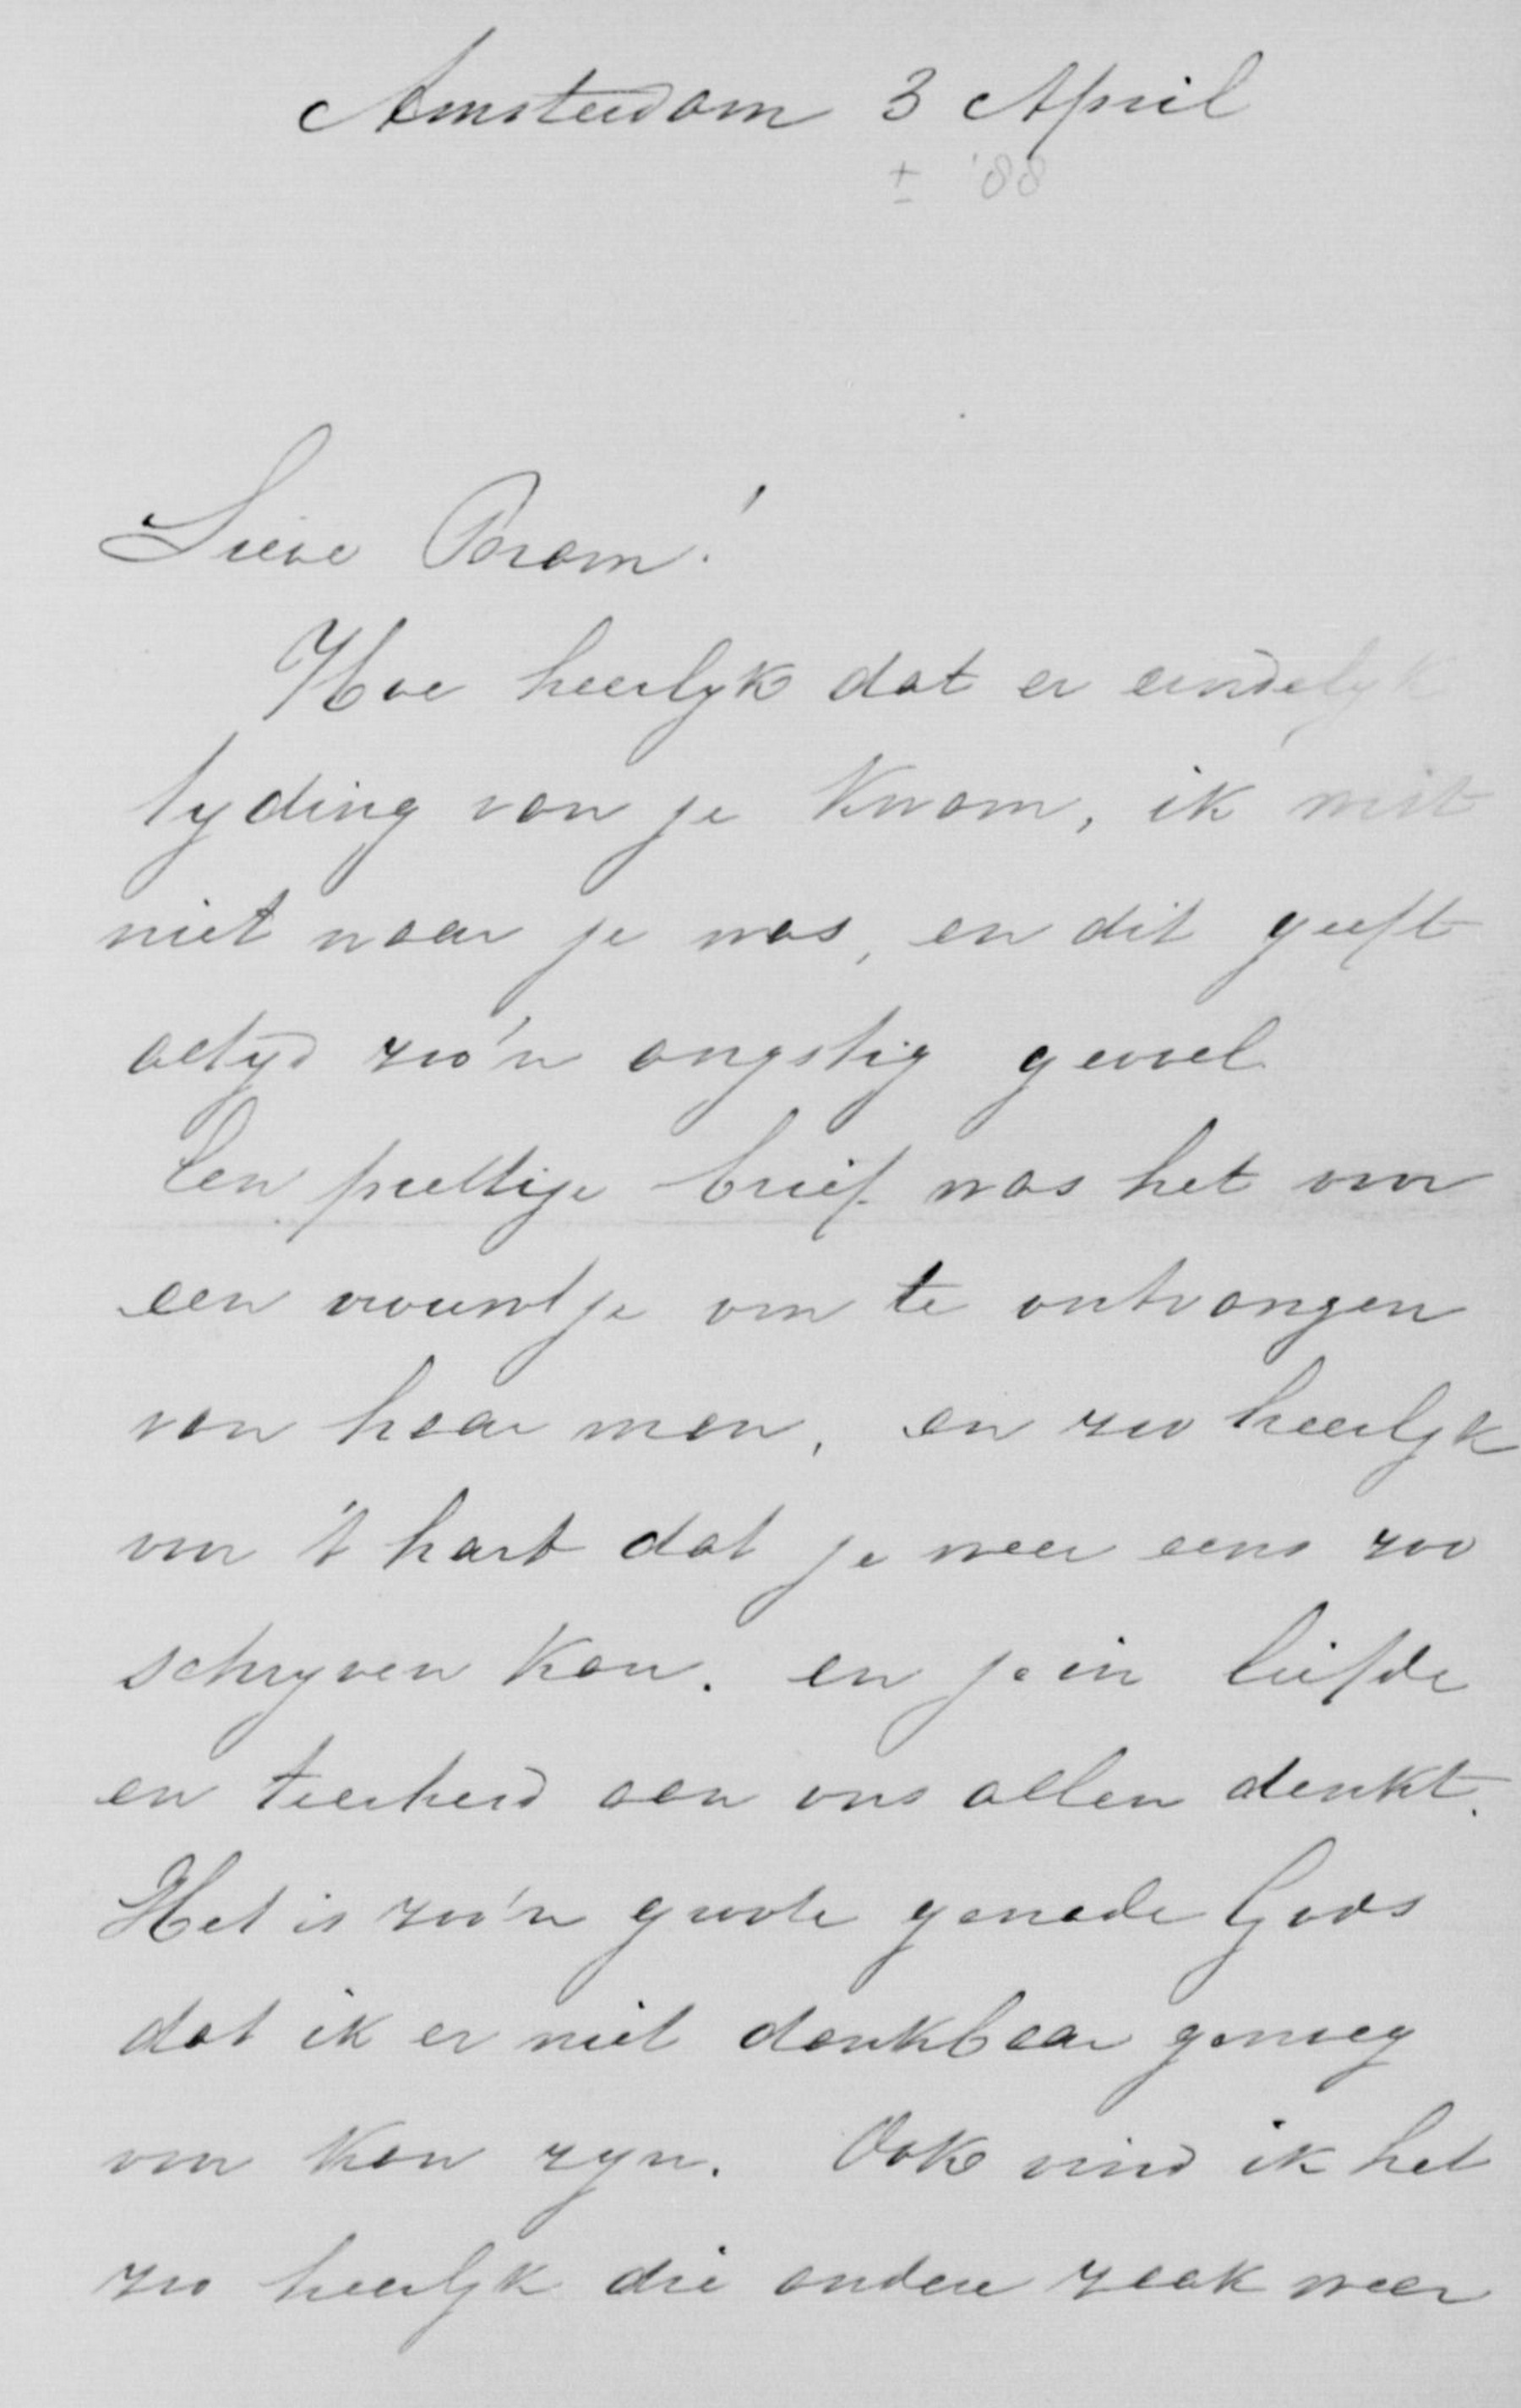 Amsterdam 3 April
± '88
Lieve Bram!
Hoe heerlyk dat er eindelyk
tyding van je kwam, ik wist
niet waar je was, en dit geeft
altyd zoo'n angstig gevoel
Een prettige brief was het voor
een vrouwtje om te ontvangen
van haar man, en zoo heerlyk
voor 't hart dat je weer eens zoo
schryven kan. en je in liefde
en teerheid aan ons allen denkt.
Het is zoo'n groote genade Gods
dat ik er niet dankbaar genoeg
voor kan zyn. Ook vind ik het
zoo heerlyk die andere zaak weer